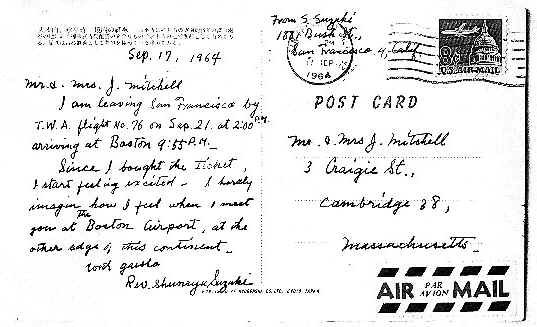 Sep. 17, 1964
Mr. & Mrs. J. Mitchell
I am leaving San Francisco by
T.W.A. flight No. 76 on Sep. 21. at 2:00 P.M.
arriving at Boston 9:55 P.M.
Since I bought the Ticket,
I start feeling excited. I barely
imagin how I feel when I meet
you at the Boston Airport, at the
other edge of this continent.
with gassho
Rev. Shunryu Suzuki
From S. Suzuki
1881 Bush St.,
San Francisco 9, Calif
PM
SEP
1964
8c
U.S. AIR MAIL
POST CARD
Mr. & Mrs J. Mitchell
3 Craigie St.,
Cambridge 38,
Massachusetts
AIR PAR AVION MAIL